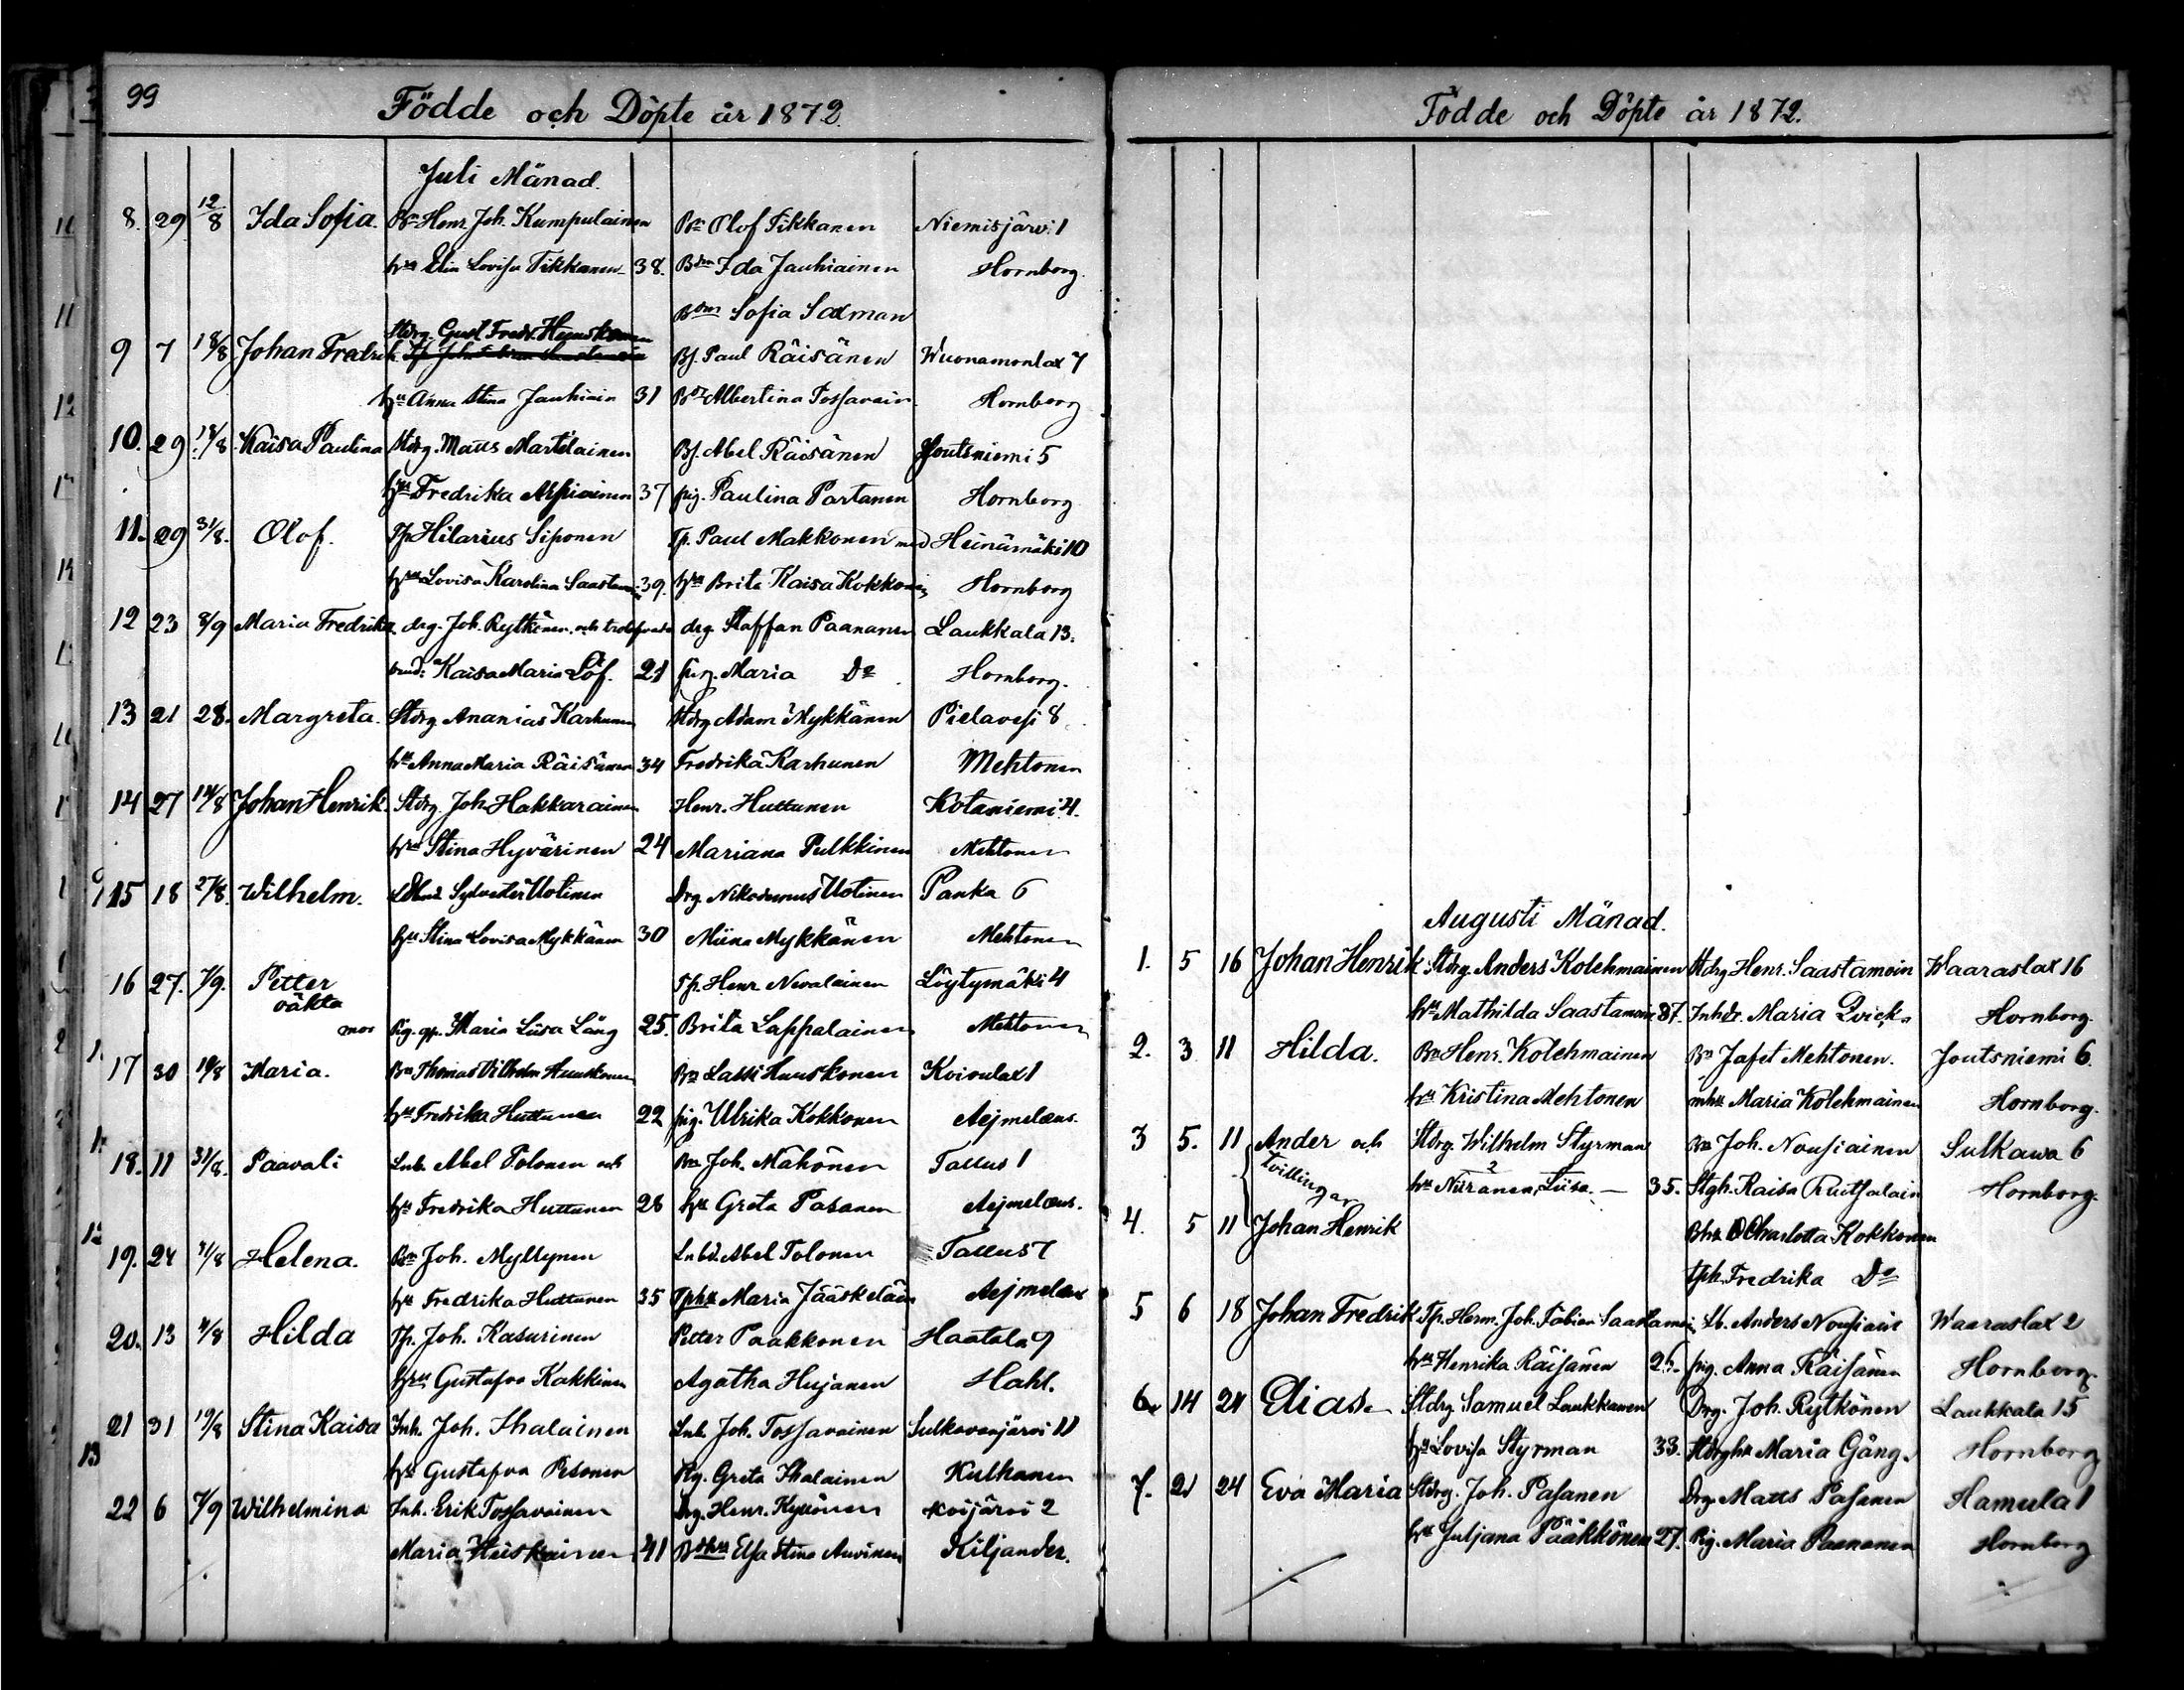 99
Födde och Döpte år 1872.
Juli Månad.
8. 29 12/8 Ida Sofia. Bn Henr. Joh. Kumpulainen Bn Olof Tikkanen Niemisjärvi 1
hu Elin Lovisa Tikkanen 38. Bdn Ida Jauhiainen Hornborg.
Bdn Sofia Saxman
Stdrg. Gust Fredr. Huuskonen
9 7 18/8 Johan Fredrik Bf. Paul Räisänen Wuonamonlax 7
hu Anna Stina Jauhiain 31 Bdr Albertina Tossavain Hornborg
10. 29 18/8 Kaisa Paulina Stdrg. Matts Martelainen Bf. Abel Räisänen Joutsniemi 5
hu Fredrika 37 pig. Paulina Partanen Hornborg
11. 29 31/8. Olof. Tp Hilarius Siponen Tp. Paul Makkonen med Heinämäki 10
hu Lovisa Karolina Saastam 39. hu Brita Kaisa Kokkonen Hornborg
12 23 8/9 Maria Fredrika drg. Joh. Rytkönen och trolofvade drg. Staffan Paananen Laukkala 13.
brud: Kaisa Maria Löf. 21 pig. Maria Do Hornborg.
13 21 28. Margreta. Stdrg Ananias Karhunen Stdrg Adam Mykkänen Pielavesi 8
hu Anna Maria Räisänen 34 Fredrika Karhunen Mehtonen
14 27 14/8 Johan Henrik. Stdrg. Joh. Hakkarainen Henr. Huttunen Kotaniemi 4.
hu Stina Hyvärinen 24 Mariana Pulkkinen Mehtonen
15 18 27/8. Wilhelm. Sylvester Uotinen Drg. Nikodemus Uotinen Panka 6
hu Stina Lovisa Mykkänen 30 Miina Mykkänen Mehtonen
16 27. 7/9. Petter Tp. Henr Nevalainen Löytymäki 4
oäkta
mor Pig. Maria Liisa Läng 25. Brita Lappalainen Mehtonen
17 30 18/8 Maria. Bn Thomas Vilhelm Huuskonen Bn Lassi Huuskonen Koivulax 1
hu Fredrika Huttunen 22 pig. Ulrika Kokkonen Aejmelæus.
18. 11 31/8. Paavali Lnb. Abel Tolonen och Bn Joh. Mähönen Tallus 1
hu Fredrika Huttunen 28 hu Greta Pasanen Aejmelæus.
19. 24 31/8 Helena. Bn Joh. Myllynen Lnbd. Abel Tolonen Tallus 7
hu Fredrika Huttunen 35 Tphu Maria Jääskeläin Aejmelæus
20. 13 4/8 Hilda Tp. Joh. Kasurinen Petter Paakkonen Haatala 9
hu Gustafva Kakkinen Agatha Hujanen Hahl.
21 31 19/8 Stina Kaisa Inh. Joh. Ihalainen Lnb. Joh. Tossavainen Sulkavanjärvi 11
hu Gustafva Pesonen Pig. Greta Ihalainen Kulhanen
22 6 7/9 Wilhelmina Inh. Erik Tossavainen Drg. Henr. Kyllönen Koijärvi 2
Maria Heiskainen 41 Elsa Stina Auvinen Kiljander.
Födde och Döpte år 1872.
Augusti Månad.
1. 5 16 Johan Henrik Stdrg. Anders Kolehmainen Stdrg Henr. Saastamoin Waaraslax 16
hu Mathilda Saastamoin 37. Inhdr. Maria Qvick Hornborg.
2. 3 11 Hilda. Bn Henr. Kolehmainen Bn Jafet Mehtonen. Joutsniemi 6.
hu Kristina Mehtonen Maria Kolehmainen Hornborg.
3 5. 11 Ander och Stdrg. Wilhelm Styrman Bn Joh. Nousiainen Sulkawa 6
tvillingar hu Niiranen, Liisa. 2 35. Stgh. Kaisa Ruitsalain Hornborg.
4. 5 11 Johan Henrik Bhu Charlotta Kokkonen
tph Fredrika Do
5 6 18 Johan Fredrik Tp. Herm. Joh. Fabian Saastamoin Lb. Anders Nousiain Waaraslax 2
hu Henrika Räisänen 26. pig. Anna Räisänen Hornborg.
6 14 24 Elias Stdrg Samuel Laukkanen Drg. Joh. Rytkönen Laukkala 15
hu Lovisa Styrman 33. Stdrghu Maria Gång. Hornborg
7. 21 24 Eva Maria Stdrg. Joh. Pasanen Drg. Matts Pasanen Hamula 1
hu Juljana Pääkkönen 27. Pig. Maria Paananen Hornborg